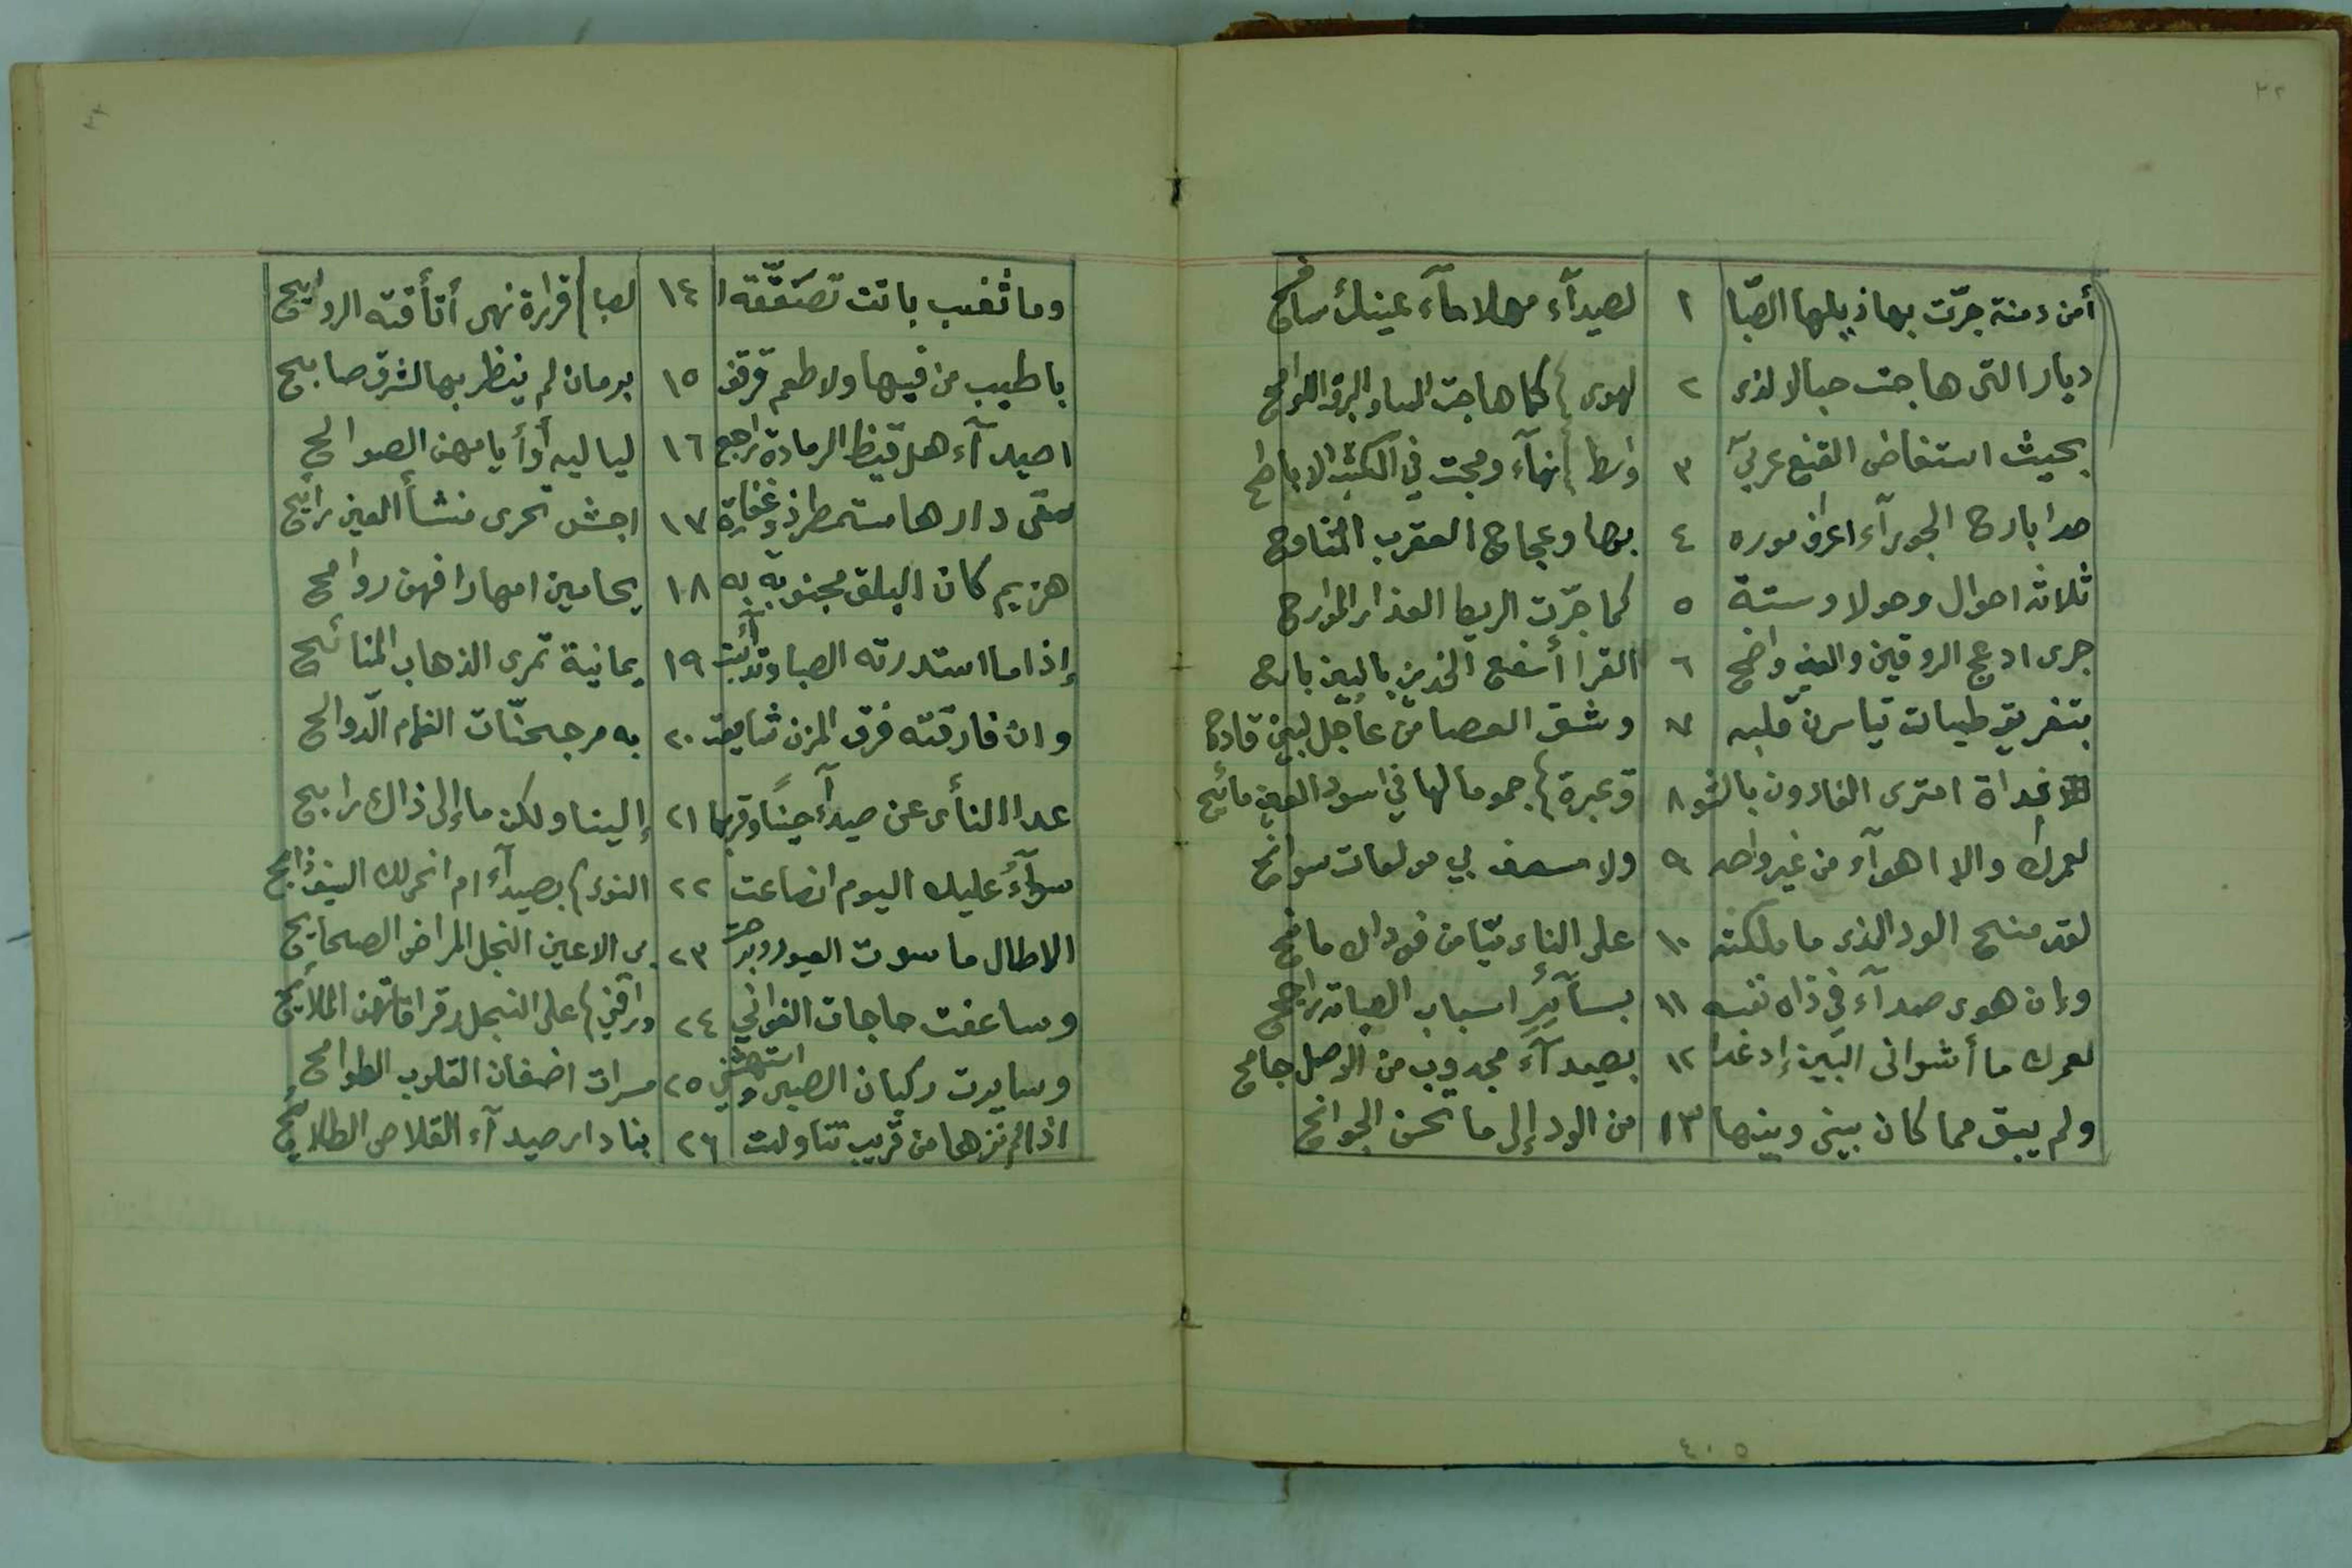 ٢٢
أمن دمنة جرّت بها ذيلها الصّبا ١ لصيدآء مهلا مآء عينيك سافح
ديار التى هاجت خبالا لذى ٢ الهوى كما هاجت الشاو البروق اللوامح
بحيث استفاض القنع غربيّ ٣ واسط نهآء ومجت في الكثيب الاباطح
حدا بارح الجوزآء اعراف موره ٤ بها وعجاج العقرب المتناوح
ثلاثة احوال وحولا وستة ٥ كما جرّت الريط العذارى الموارح
جرى ادعج الروقين والعين واضح ٦ القرا أسفع الخدين بالبين بارح
بتفريق طيات تياسرن قلبه ٧ وشق العصا من عاجل البين قادح
غداة امترى الغادون بالشو ٨ ق عبرة جموما لها في اسود العين مائح
لعمرك والا اهوآء من غير واحد ٩ ولا مسعف بي مولعات سوانح
لقد منح الود الذى ما ملكته ١٠ على الناى ميّا من فودك مانح
وان هوى صيدآء في ذات نفسه ١١ بسآئر اسباب الصبابة راجح
لعمرك ما أشوانى البين إذ غدا ١٢ بصيدآء مجذوب من الوصل جامح
ولم يبق مما كان بينى وبينها ١٣ من الود إلى ما تحن الجوانح
وما ثغب باتت تصَفّقه ا ١٤ لصبا قرارة نهى أتأقته الروايح
باطيب من فيها ولا طعم قرقف ١٥ برمان لم ينظر بها لشرق صابح
اصيدآء هل قيظ الرمادة راجع ١٦ لياليه أو أيامهن الصوالح
سقى دارها مستمطر ذو غفارة ١٧ اجش تحرى منشأ العين رايح
هزيم كان البلق مجنوبة به ١٨ يحامين امهارا فهن روامح
إذا ما استدرته الصبا وتذأبت ١٩ يمانية تمرى الذهاب المنائح
وان فارقته فرق المزن شايعت ٢٠ به مرجحنّات الغمام الدّوالح
عدا النأى عن صيدآء حينًا وقربها ٢١ إلينا ولكن ما إلى ذاك رابح
سوآءٌ عليك اليوم انصاعت ٢٢ النوى بصيدآء ام انحى لك السيف ذابح
الاطال ما سوت الغيور وبرحت ٢٣ بى الاعين النجل المراض الصحايح
وساعفت حاجات الغوانى ٢٤ وراقنى على البخل رقراقاتهن الملايح
وسايرت ركبان الصبى واستهشني ٢٥ مسرات اضغان القلوب الطوامح
اذا لم نزرها من قريب تناولت ٢٦ بنا دار صيدآء القلاص الطلايح
٤٠٥